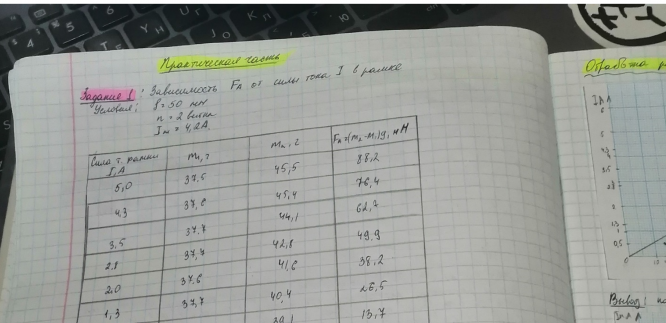 Практическая часть
Задание 1: Зависимость FA от силы тока I в рамке
Условия: l = 50 мм
n = 2 витка
Iм = 4,2А
Сила т. рамки I, А m1, г m2, г FA=(m2-m1)g, мН
5,0 37,5 45,5 88,2
4,3 37,6 45,4 76,4
3,5 37,7 44,1 62,7
2,8 37,7 42,8 49,9
2,0 37,6 41,6 38,2
1,3 37,7 40,4 26,5
39,1 13,7
Обработка
I, А
0,5
Вывод: